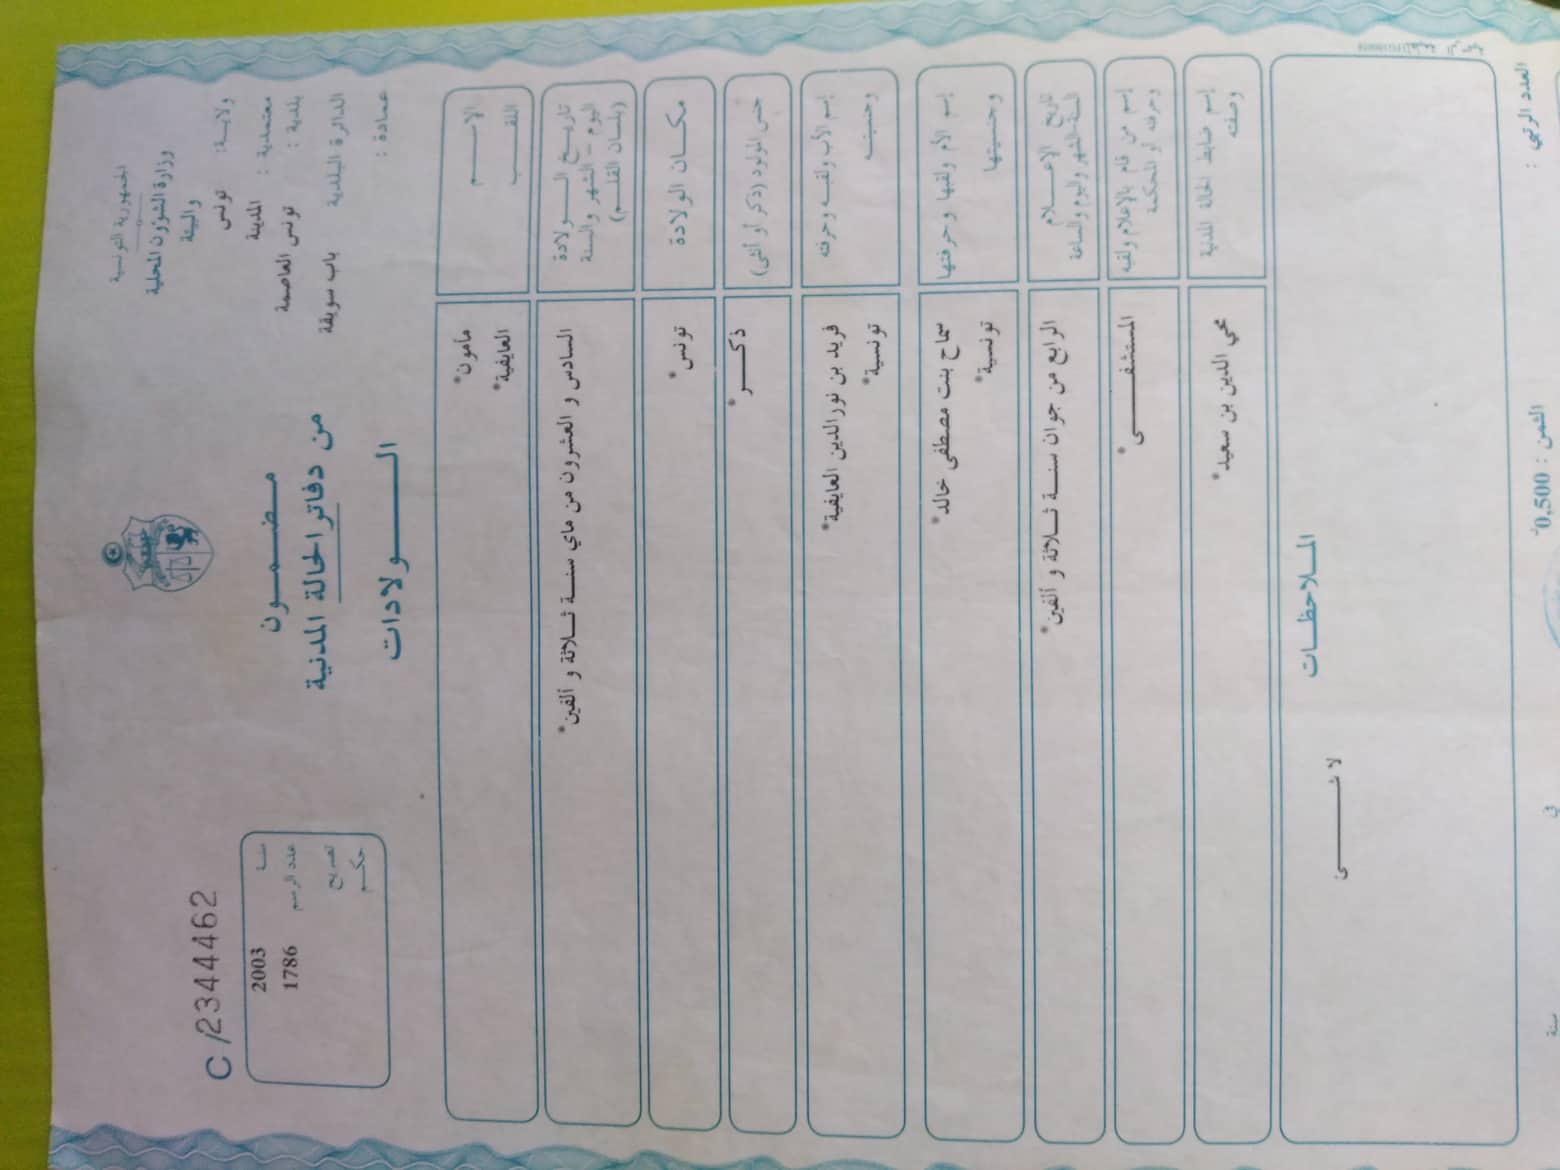 الجمهورية التونسية
وزارة الشؤون المحلية
والبيئة
ولاية: تونس
معتمدية : المدينة
بلدية : تونس العاصمة
الدائرة البلدية باب سويقة
عمادة :
مضمون
من دفاتر الحالة المدنية
الولادات
C/2344462
سنة 2003
عدد الرسم 1786
تصريح
حكم
الإسم مأمون*
اللقب العايفية*
تاريخ الولادة
اليوم - الشهر والسنة
(بلسان القلم)
السادس و العشرون من ماي سنة ثلاثة و ألفين*
مكان الولادة تونس*
جنس المولود (ذكر أو أنثى) ذكر*
إسم الأب ولقبه وحرفته فريد بن نورالدين العايفية*
وجنسيته تونسية*
إسم الأم ولقبها وحرفتها سماح بنت مصطفى خالد*
وجنسيتها تونسية*
تاريخ الإعلام
السنة والشهر واليوم والساعة
الرابع من جوان سنة ثلاثة و ألفين*
إسم من قام بالإعلام ولقبه
وحرفته أو المحكمة
المستشفى*
إسم ضابط الحالة المدنية
وصفته
محي الدين بن سعيد*
الملاحظات
لا شئ
العدد الرتبي :
الثمن : 0,500
في
سنة